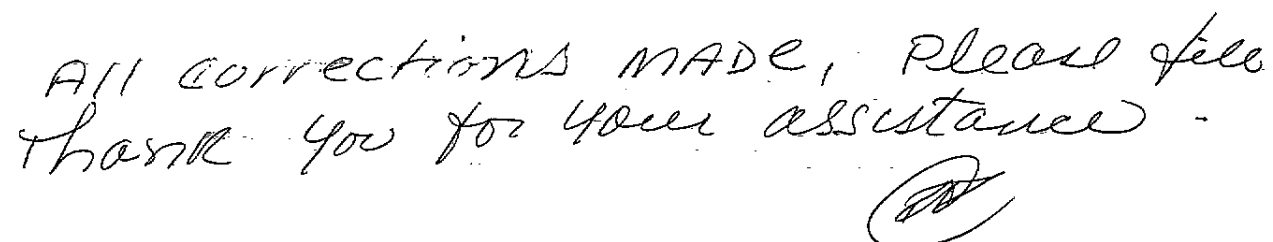 All corrections MADE, Please file
Thank you for your assistance.